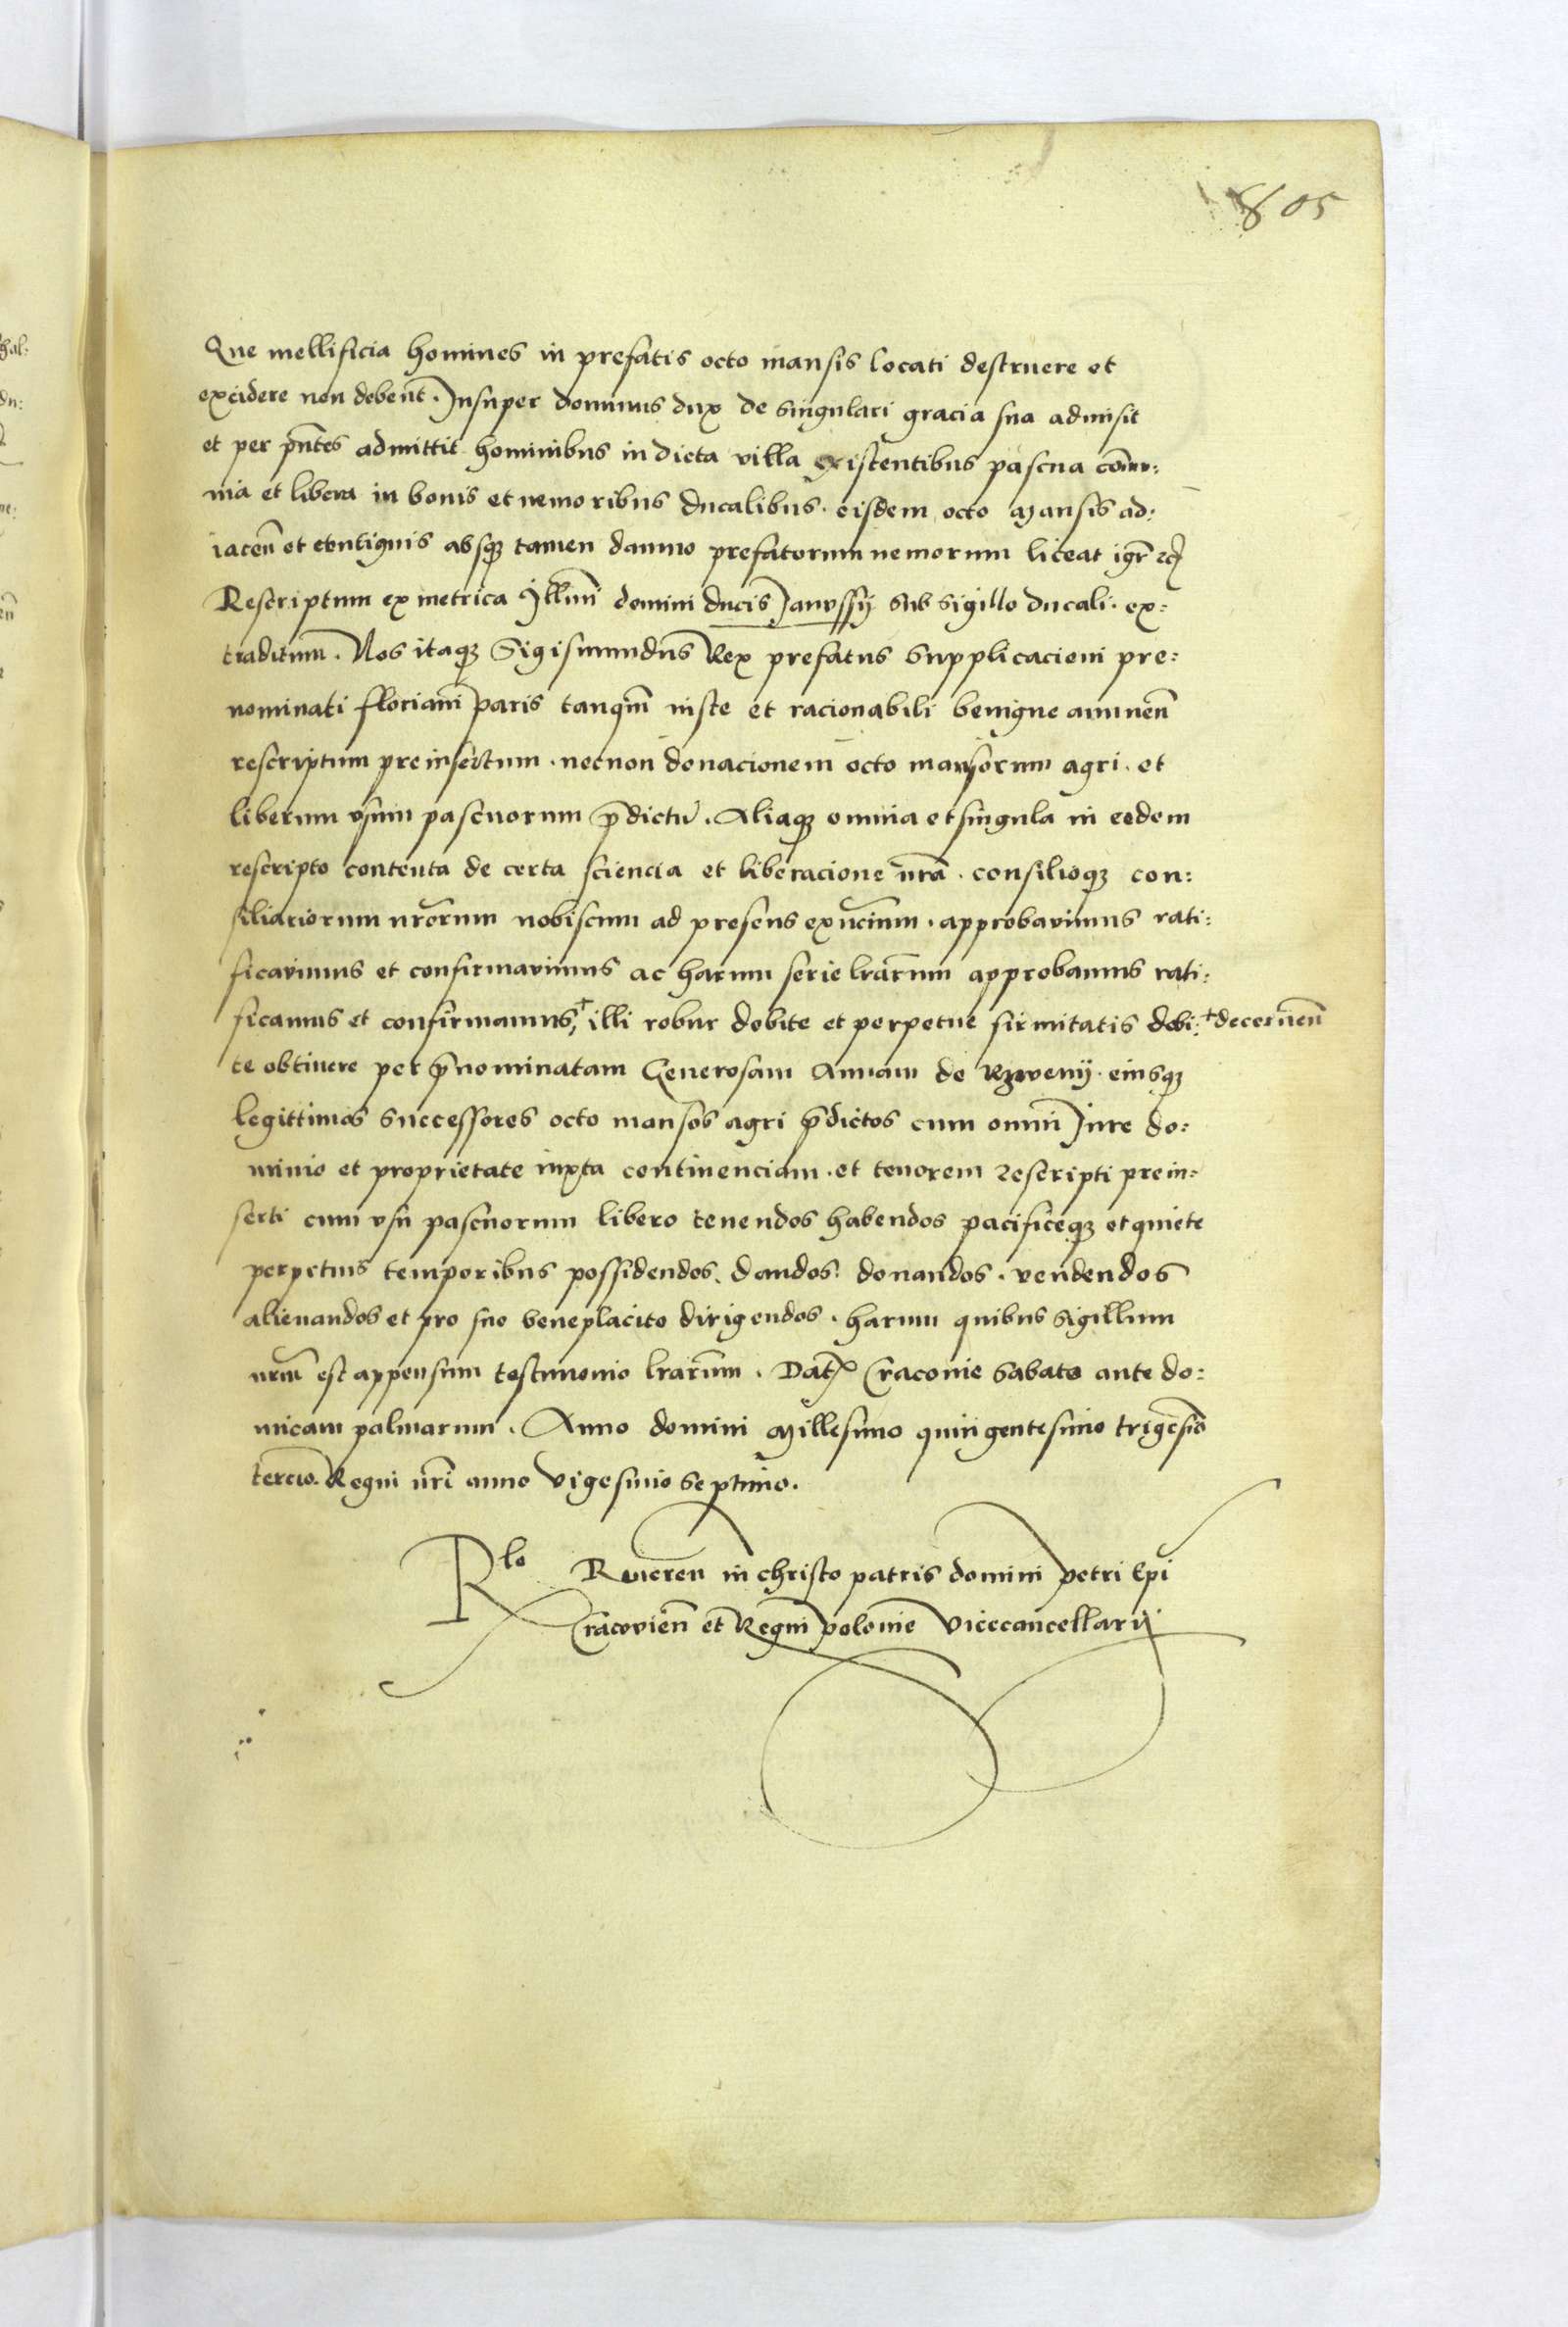 805
Que mellificia homines in prefatis octo mansis locati destruere et
excidere non debent̄. Insuper dominus dux de singulari gracia sua admisit
et per pn̄tes admittit hominibus in dicta villa existentibus pascua com̄u:
nia et libera in bonis et nemoribus ducalibus. eisdem octo mansis ad:
iacen̄ et contiguis absqꝫ tamen damno prefatorum nemorum liceat igr̄ etc̄
Rescriptum ex metrica Illmī domini ducis Janussij sub sigillo ducali. ex:
traditum. Nos itaqꝫ Sigismundus Rex prefatus supplicacioni pre:
nominati floriani paris tanqm̄ iuste et racionabili benigne annuen̄
rescriptum preinsertum. necnon donacionem octo mansorum agri. et
liberum vsum pascuorum p̄dictū. Aliaqꝫ omnia et singula in eodem
rescripto contenta de certa sciencia et liberacione nr̄a. consilioqꝫ con:
siliariorum nr̄orum nobiscum ad presens exn̄cium. approbavimus rati:
ficavimus et confirmavimus ac harum serie lr̄arum approbamus rati:
ficamus et confirmamus,+ illi robur debite et perpetue firmitatis debi: +decernen̄
te obtinere per p̄nominatam Generosam Annam de Rzweny. eiusqꝫ
legittimos successores octo mansos agri p̄dictos cum omni Jure do:
minio et proprietate iuxta continenciam. et tenorem rescripti prein:
serti cum vsu pascuorum libero tenendos habendos pacificeqꝫ et quiete
perpetuis temporibus possidendos. dandos. donandos. vendendos
alienandos et pro suo beneplacito dirigendos. harum quibus sigillum
nrm̄ est appensum testimonio lr̄arum. Dat̄ Cracovie Sabato ante do:
micam palmarum. Anno domini Millesimo quingentesimo trigesīo
tercio. Regni nr̄i anno vigesimo septimo.
Rlo Reveren̄ in christo patris domini petri Ep̄i
Cracovien̄ et Regni polonie Vicecancellarij